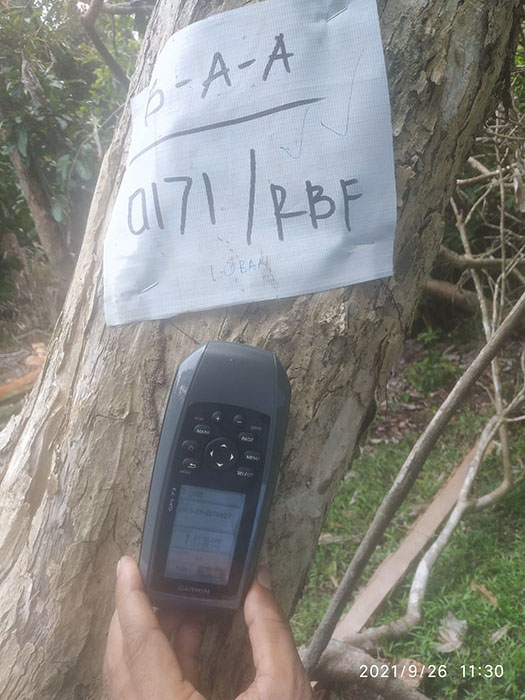 B-A-A
0171/RBF
LOBAN
MARK
PAGE
MENU
SELECT
GPS 73
GARMIN
2021/9/26 11:30